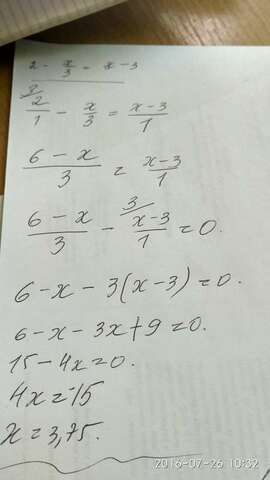 2 - x/3 = x - 3
3
2/1 - x/3 = x-3/1
6-x/3 = x-3/1
6-x/3 - 3 x-3/1 = 0.
6-x-3(x-3)=0.
6-x-3x+9=0.
15-4x=0.
4x=15
x=3,75.
2016-07-26 10:32